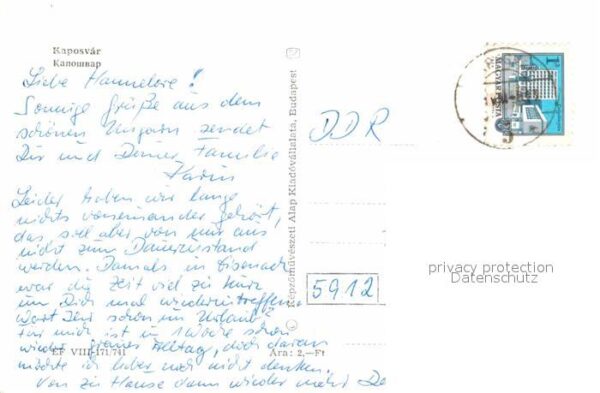 Kaposvár
Капошвар
Liebe Hannelore!
Sonnige Grüße aus dem
schönen Ungarn sendet
Dir und Deiner Familie
Karin
Leider haben wir lange
nichts voneinander gehört,
das soll aber von mir aus
nicht zum Dauerzustand
werden. Damals in Eisenach
war die Zeit viel zu kurz
um Dich mal wiederzutreffen.
Wart Ihr schon im Urlaub?
Für mich ist in 1 Woche schon
wieder graues Alltag, doch daran
möchte ich lieber noch nicht denken.
Von zu Hause dann wieder mehr De
EF VIII-171/741
Ára: 2,—Ft
© Képzőművészeti Alap Kiadóvállalata, Budapest
DDR
5912
1 Ft
MAGYAR POSTA
privacy protection
Datenschutz